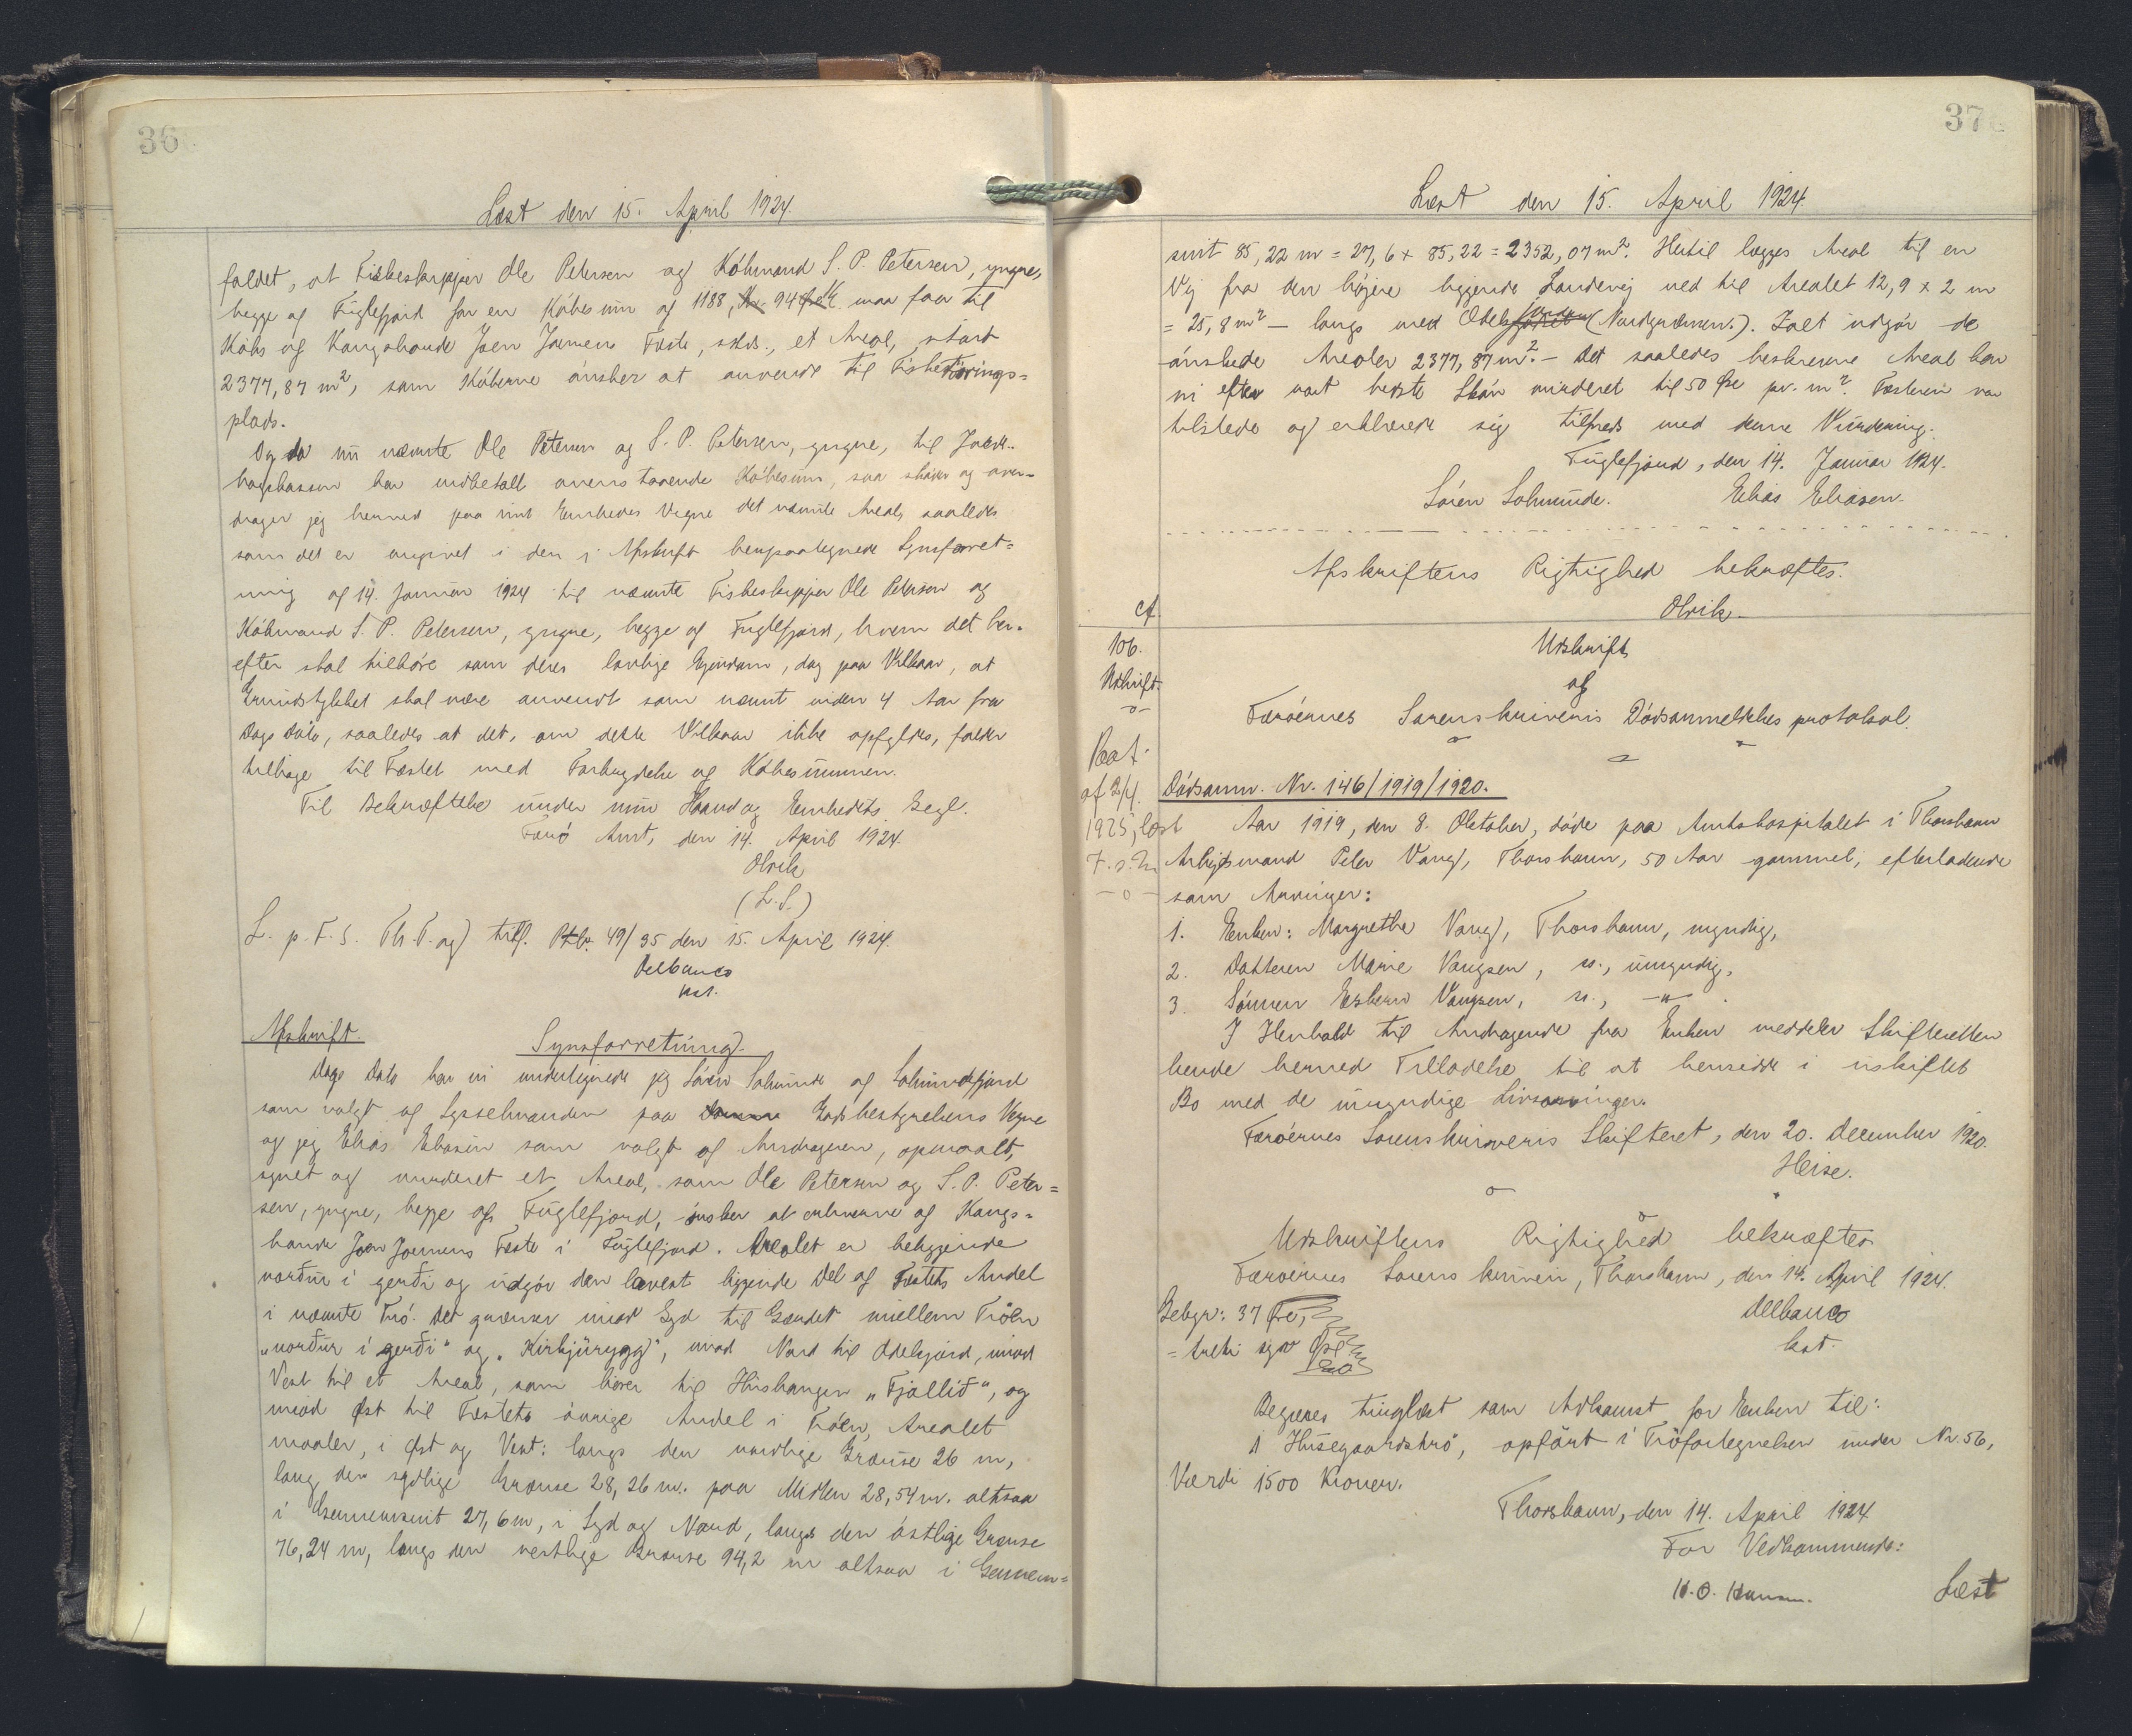 36
Læst den 15. April 1924.
faldet, at Fiskeskipper Ole Petersen og Köbmand S. P. Petersen, yngre,
begge af Fuglefjord for en Köbesum af 1188, Kr. 94 Øre maa faa til
Köbs af Kongsbonde Joen Joensens Fæste, sstds., et Areal, stort
2377,87 m², som Köberne önsker at anvende til Fisketörrings=
plads.
Og da nu nævnte Ole Petersen og S. P. Petersen, yngre, til Jorde-
bogskassen har indbetalt ovenstaaende Köbesum, saa sköder og over-
drager jeg herved paa mit Embedes Vegne det nævnte Areal, saaledes
som det er angivet i den i Afskrift henpaategnede Synsforret=
ning af 14. Januar 1924 til nævnte Fiskeskipper Ole Petersen og
Köbmand S. P. Petersen, yngre, begge af Fuglefjord, hvem det her-
efter skal tilhöre som deres lovlige Ejendom, dog paa Vilkaar, at
Grundstykket skal være anvendt som nævnt inden 4 Aar fra
Dags Dato, saaledes at det, om dette Vilkaar ikke opfyldes, falder
tilbage til Fæstet med Fortabelse af Köbesummen.
Til Bekræftelse under min Haand og Embedets Segl.
Færö Amt, den 14. April 1924.
Olrik
(L.S.)
L. p. F. S. Th. T. og tilf. Ptbr. 49/35 den 15. April 1924.
Delbanco
kst.
Afskrift. Synsforretning.
Dags Dato har vi undertegnede jeg Sören Solmunde af Solmundefjord
som valgt af Sysselmanden paa Jordbestyrelsens Vegne
og jeg Elias Eliasen som valgt af Andrageren, opmaalt,
synet og vurderet et Areal, som Ole Petersen og S. P. Peter=
sen, yngre, begge af Fuglefjord, önsker at erhverve af Kongs=
bonde Joen Joensens Fæste i Fuglefjord. Arealet er beliggende
norður i gerði og udgör den lavest liggende Del af Fæstets Andel
i nævnte Trö. Det grænser mod Syd til Gærdet mellem Tröen
„norður i gerði" og „Kirkjurygg", mod Nord til Odelsjord, mod
Vest til et Areal, som hörer til Hushaugen „Fjallið", og
mod Øst til Fæstets övrige Andel i Tröen, Arealet
maaler, i Øst og Vest: langs den nordlige Grænse 26 m,
lang den sydlige Grænse 28,26 m. paa Midten 28,54 m. altsaa
i Gennemsnit 27,6 m, i Syd og Nord, langs den östlige Grænse
76,24 m, langs den vestlige Grænse 94,2 m altsaa i Gennem=
37
Læst den 15. April 1924.
snit 85,22 m = 27,6 x 85,22 = 2352,07 m². Hertil lægges Areal til en
Vej fra den höjere liggende Landevej ned til Arealet 12,9 x 2 m
= 25,8 m² – langs med Odelsjorden (Nordgrænsen.). Ialt udgör de
önskede Arealer 2377,87 m². – Det saaledes beskrevne Areal har
vi efter vort bedste Skön vurderet til 50 Øre pr. m². Fæsteren var
tilstede og erklærede sig tilfreds med denne Vurdering.
Fuglefjord, den 14. Januar 1924.
Sören Solmunde. Elias Eliasen.
Afskriftens Rigtighed bekræftes.
Olrik.
cf.
106.
Udskrift.
Udskrift
af
Færöernes Sorenskriveris Dödsanmeldelsesprotokol.
Dödsanm. Nr. 146/1919/1920.
af 2/4.
1925, læst
Aar 1919, den 8. Oktober, döde paa Amtshospitalet i Thorshavn
Arbejdsmand Peter Vang, Thorshavn, 50 Aar gammel, efterladende
som Arvinger:
1. Enken: Margrethe Vang, Thorshavn, myndig,
2. Datteren Marie Vangsen, s., umyndig,
3. Sönnen Esbern Vangsen, s., –"–.
I Henhold til Andragende fra Enken meddeler Skifteretten
hende herved Tilladelse til at hensidde i uskiftet
Bo med de umyndige Livsarvinger.
Færöernes Sorenskriveris Skifteret, den 20. December 1920.
Heise.
Udskriftens Rigtighed bekræftes
Færöernes Sorenskriveri, Thorshavn, den 14. April 1924.
Delbanco
kst.
Gebyr: 37 Øre,
= treti syv Øre
Begæres tinglæst som Adkomst for Enken til:
1 Husegaardströ, opfört i Tröfortegnelsen under Nr. 56,
Værdi 1500 Kroner.
Thorshavn, den 14. April 1924
For Vedkommende:
H. O. Hansen.
Læst